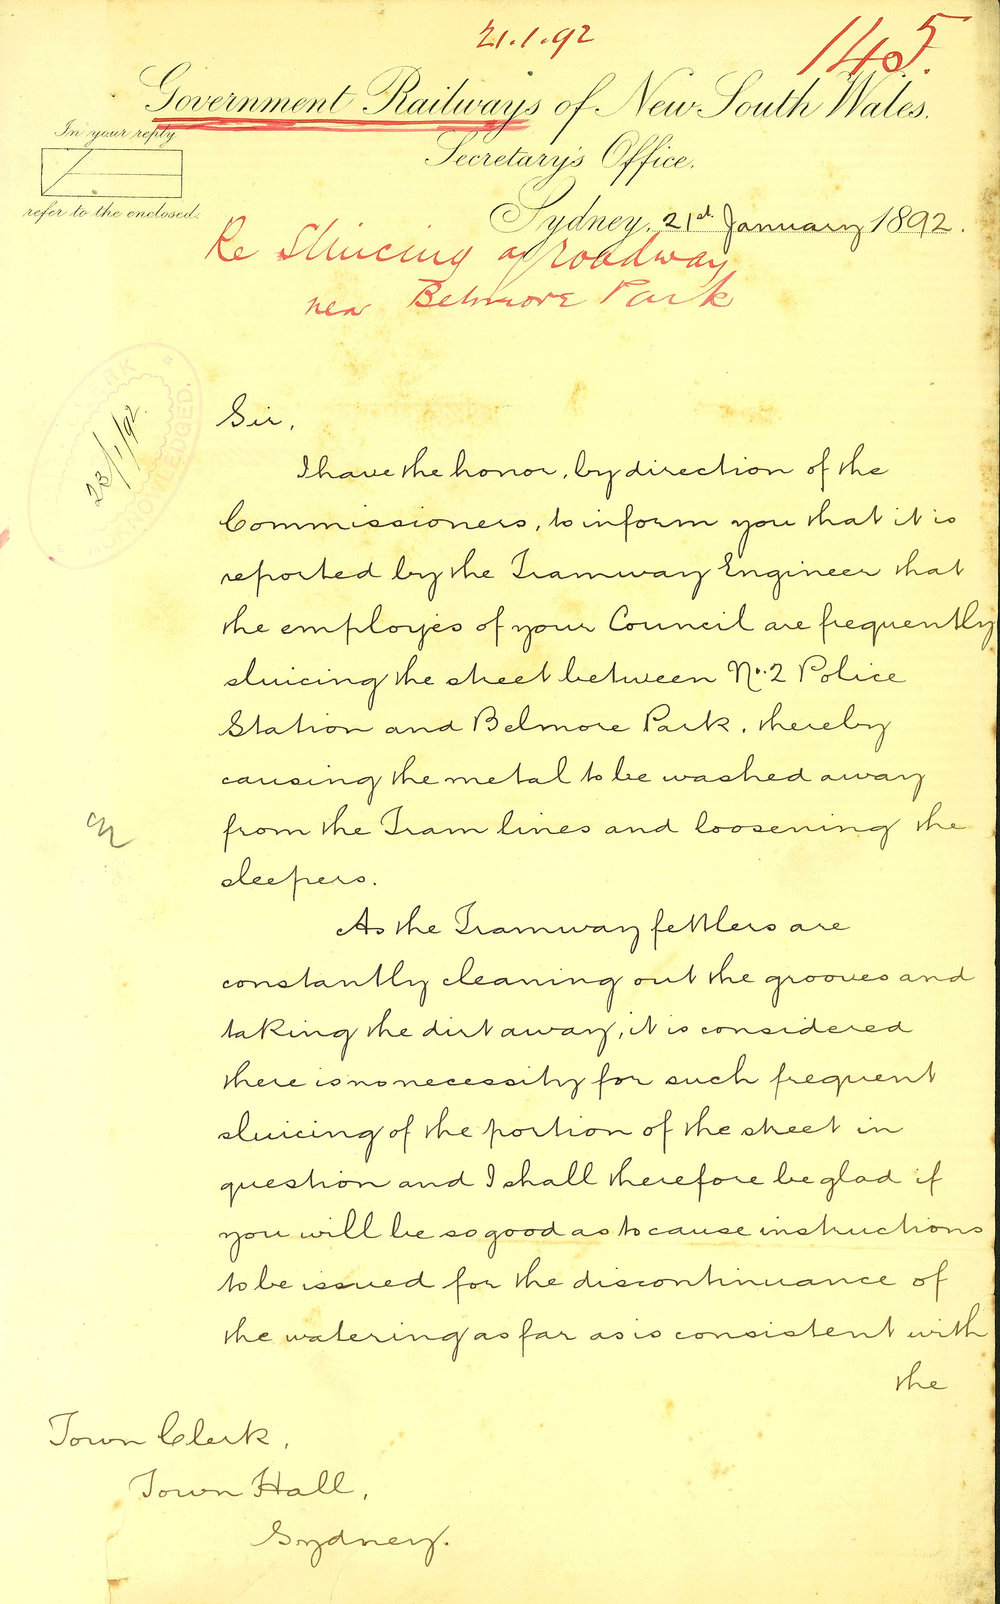 21.1.92
145.
Government Railways of New South Wales.
In your reply
Secretary's Office.
refer to the enclosed.
Sydney, 21st January 1892.
Re Sluicing of roadway
near Belmore Park
CLERK
23/1/92
ACKNOWLEDGED.
Sir,
I have the honor, by direction of the
Commissioners, to inform you that it is
reported by the Tramway Engineer that
the employés of your Council are frequently
sluicing the street between No. 2 Police
Station and Belmore Park, thereby
causing the metal to be washed away
from the Tram lines and loosening the
sleepers.
As the Tramway fettlers are
constantly cleaning out the grooves and
taking the dirt away, it is considered
there is no necessity for such frequent
sluicing of the portion of the street in
question and I shall therefore be glad if
you will be so good as to cause instructions
to be issued for the discontinuance of
the watering as far as is consistent with
the
Town Clerk,
Town Hall,
Sydney.